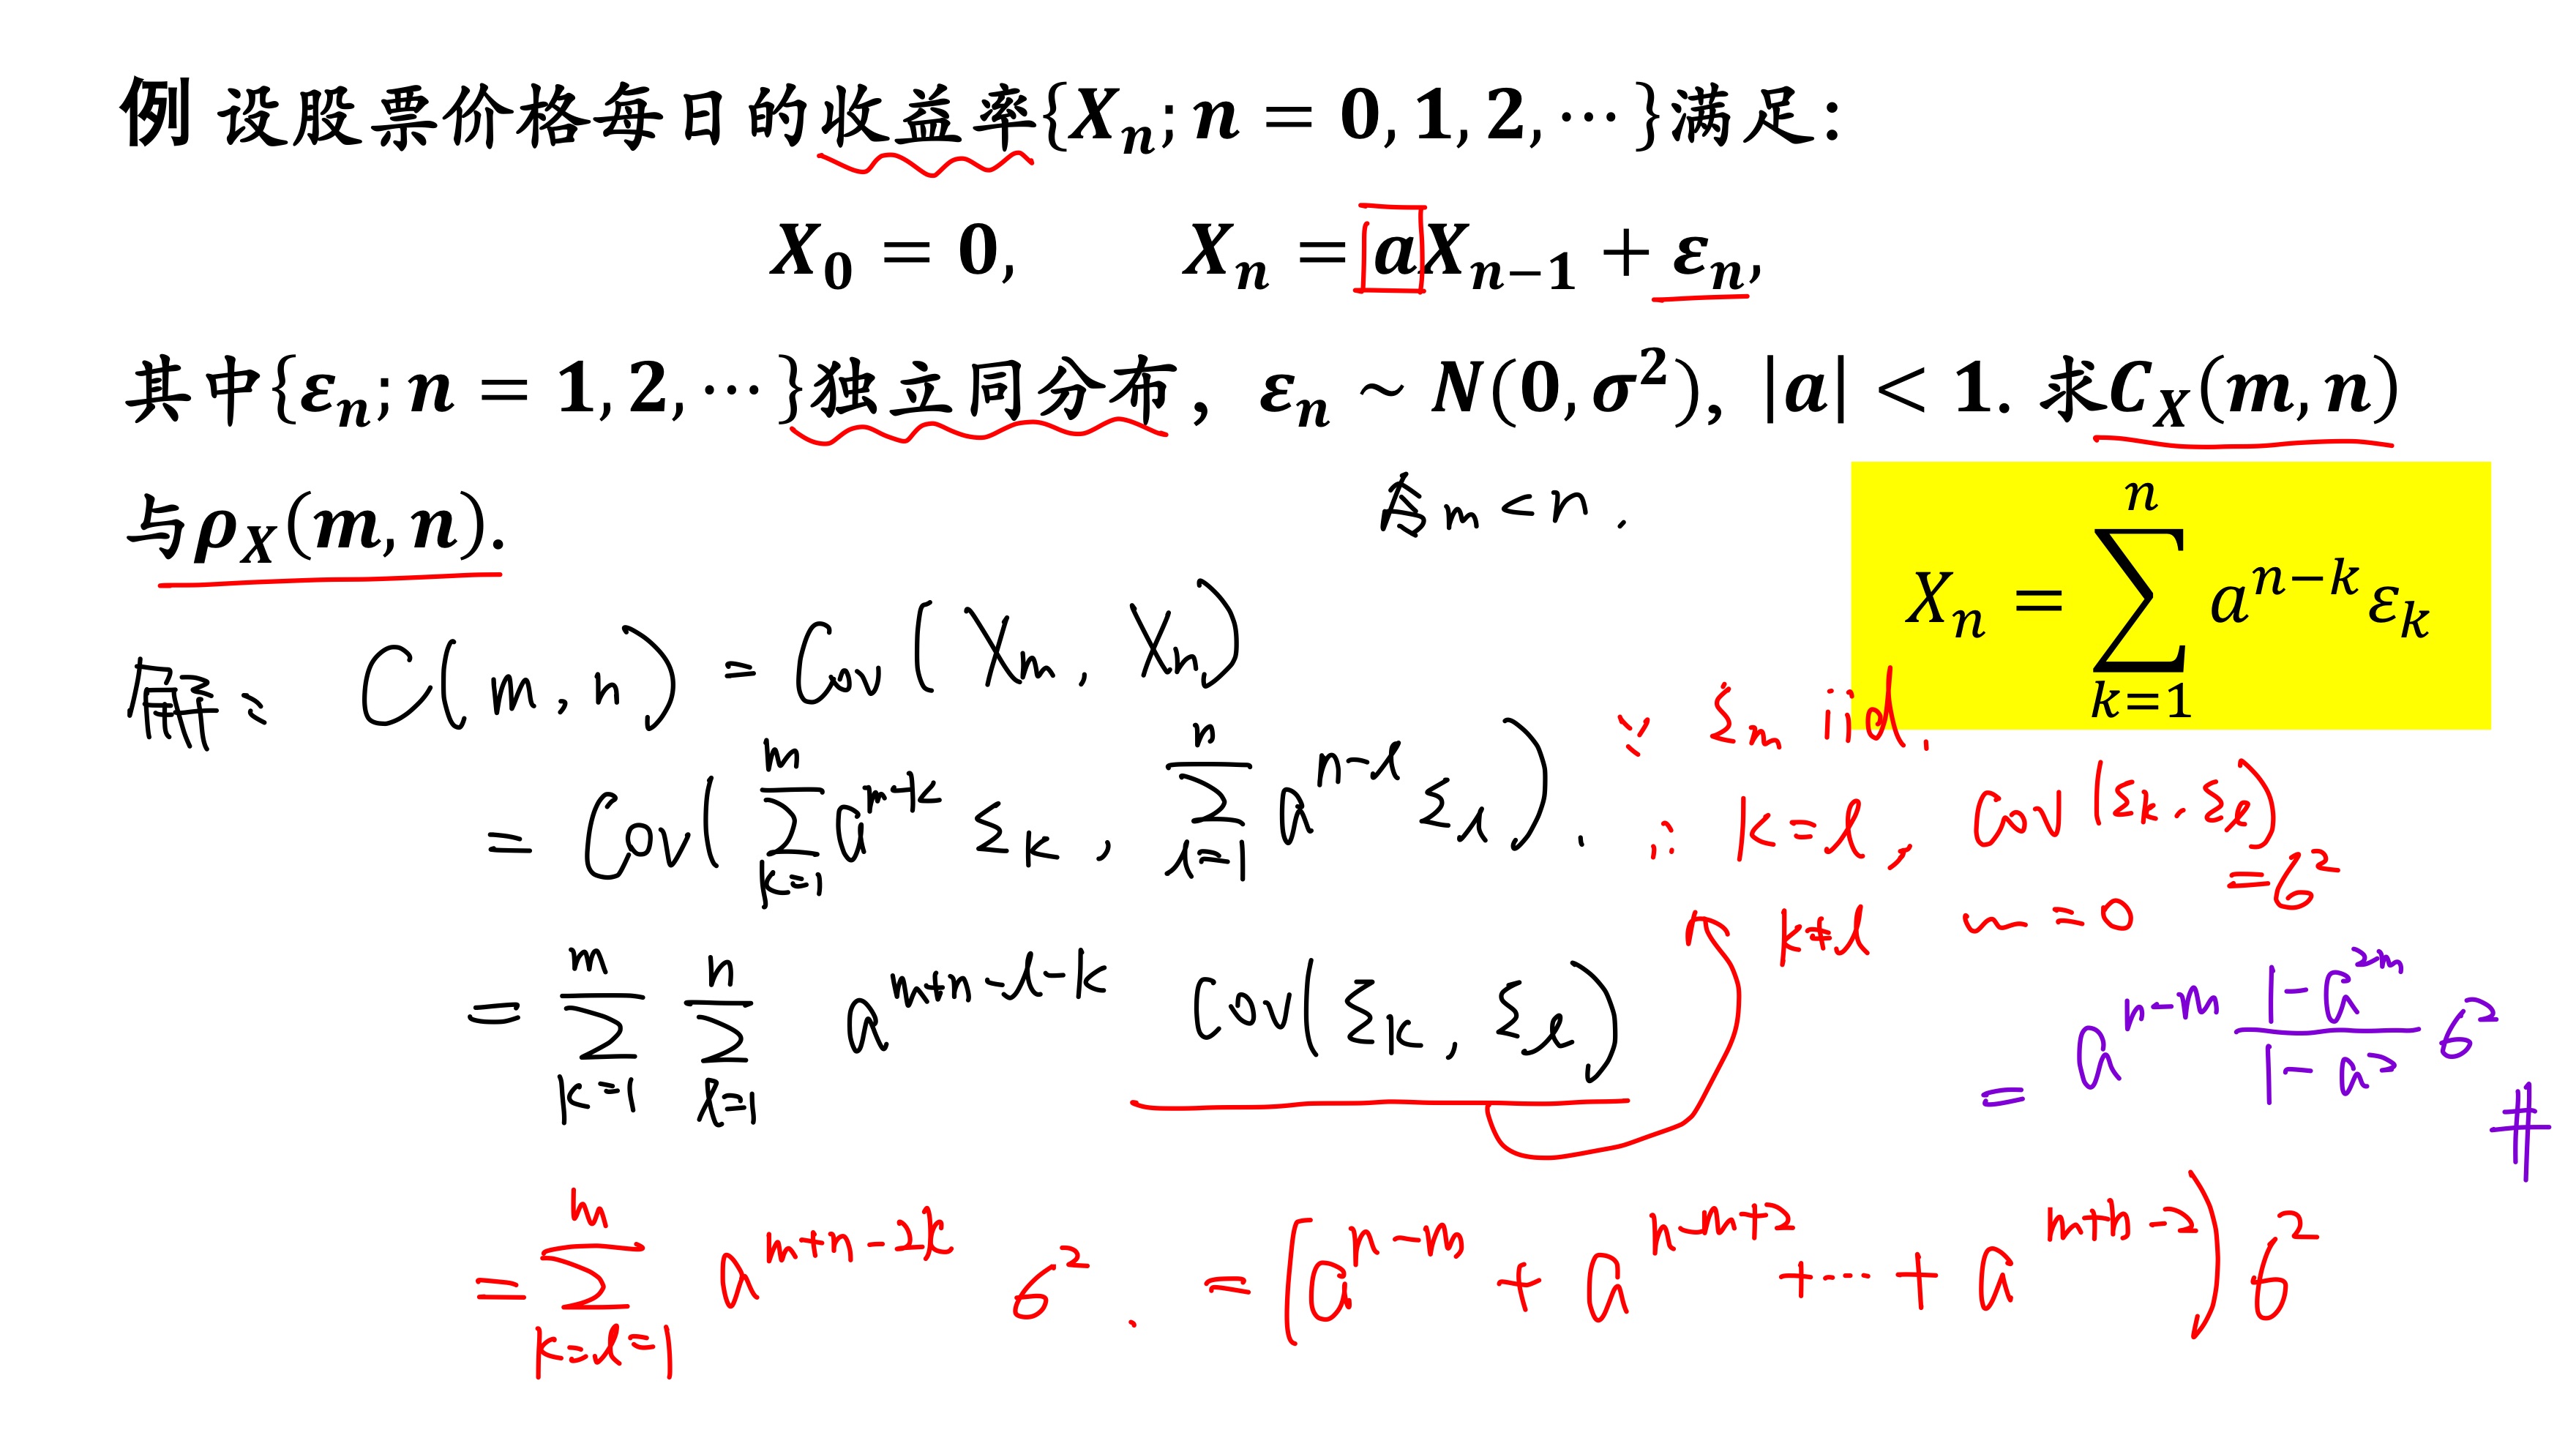 例 设股票价格每日的收益率{Xₙ; n = 0, 1, 2, ⋯}满足：
X₀ = 0, Xₙ = aXₙ₋₁ + εₙ,
其中{εₙ; n = 1, 2, ⋯}独立同分布，εₙ ~ N(0, σ²), |a| < 1. 求C_X(m, n)
与ρ_X(m, n).
m < n.
Xₙ = ∑_{k=1}^{n} a^{n−k} ε_k
解： C(m, n) = Cov(X_m, X_n)
= Cov(∑_{k=1}^{m} a^{m−k} ε_k, ∑_{l=1}^{n} a^{n−l} ε_l).
∵ ε_m iid.
∴ k = l, Cov(ε_k, ε_l) = σ²
k ≠ l ~ = 0
= ∑_{k=1}^{m} ∑_{l=1}^{n} a^{m+n−l−k} Cov(ε_k, ε_l)
= ∑_{k=l=1}^{m} a^{m+n−2k} σ². = [a^{n−m} + a^{n−m+2} + ⋯ + a^{m+n−2}) σ²
= a^{n−m} \frac{1−a^{2m}}{1−a²} σ² #